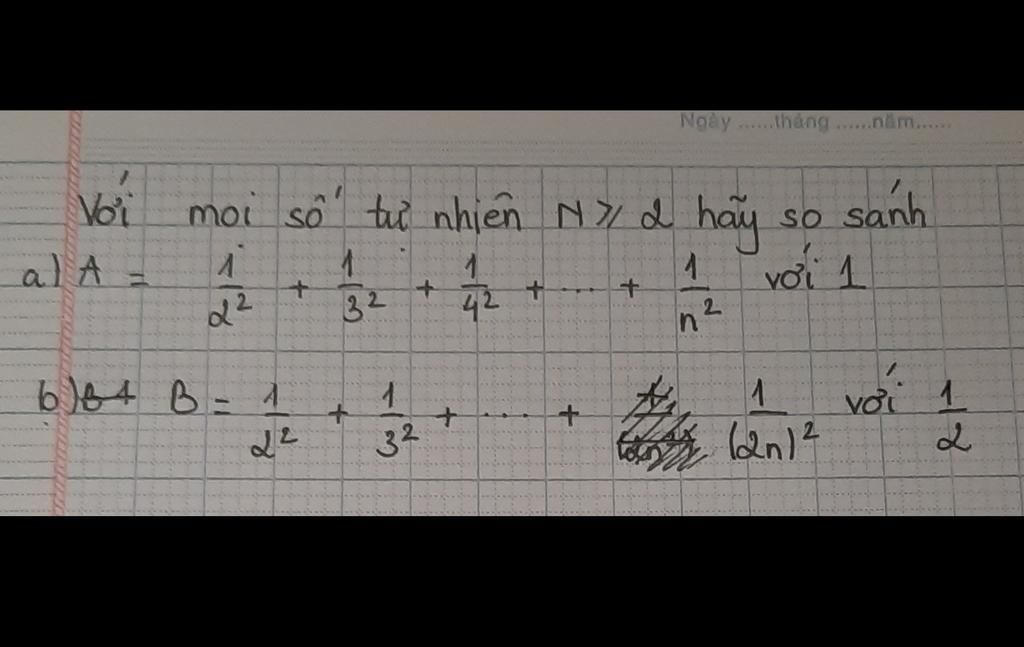 Ngày ......tháng ......năm......
Với moi số tự nhiên N ≥ 2 hãy so sánh
a) A = 1/2² + 1/3² + 1/4² + ... + 1/n² với 1
b) B = 1/2² + 1/3² + ... + 1/(2n)² với 1/2